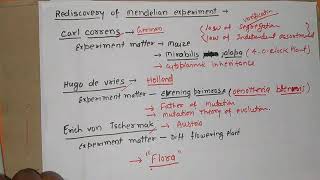 Rediscovery of mendelian experiment →
Carl correns → German
(law of segregation
law of Independent assortment
verification
experiment matter - Maize
→ Mirabilis jalapa (4-o'clock Plant)
→ cytoplasmic inheritance
Hugo de vries → Holland
Experiment matter - evening primrose (oenothera
→ Father of mutation
→ mutation Theory of evolution.
Erich von Tschermak → Austria
experiment matter - Diff flowering plant
→ "Flora"